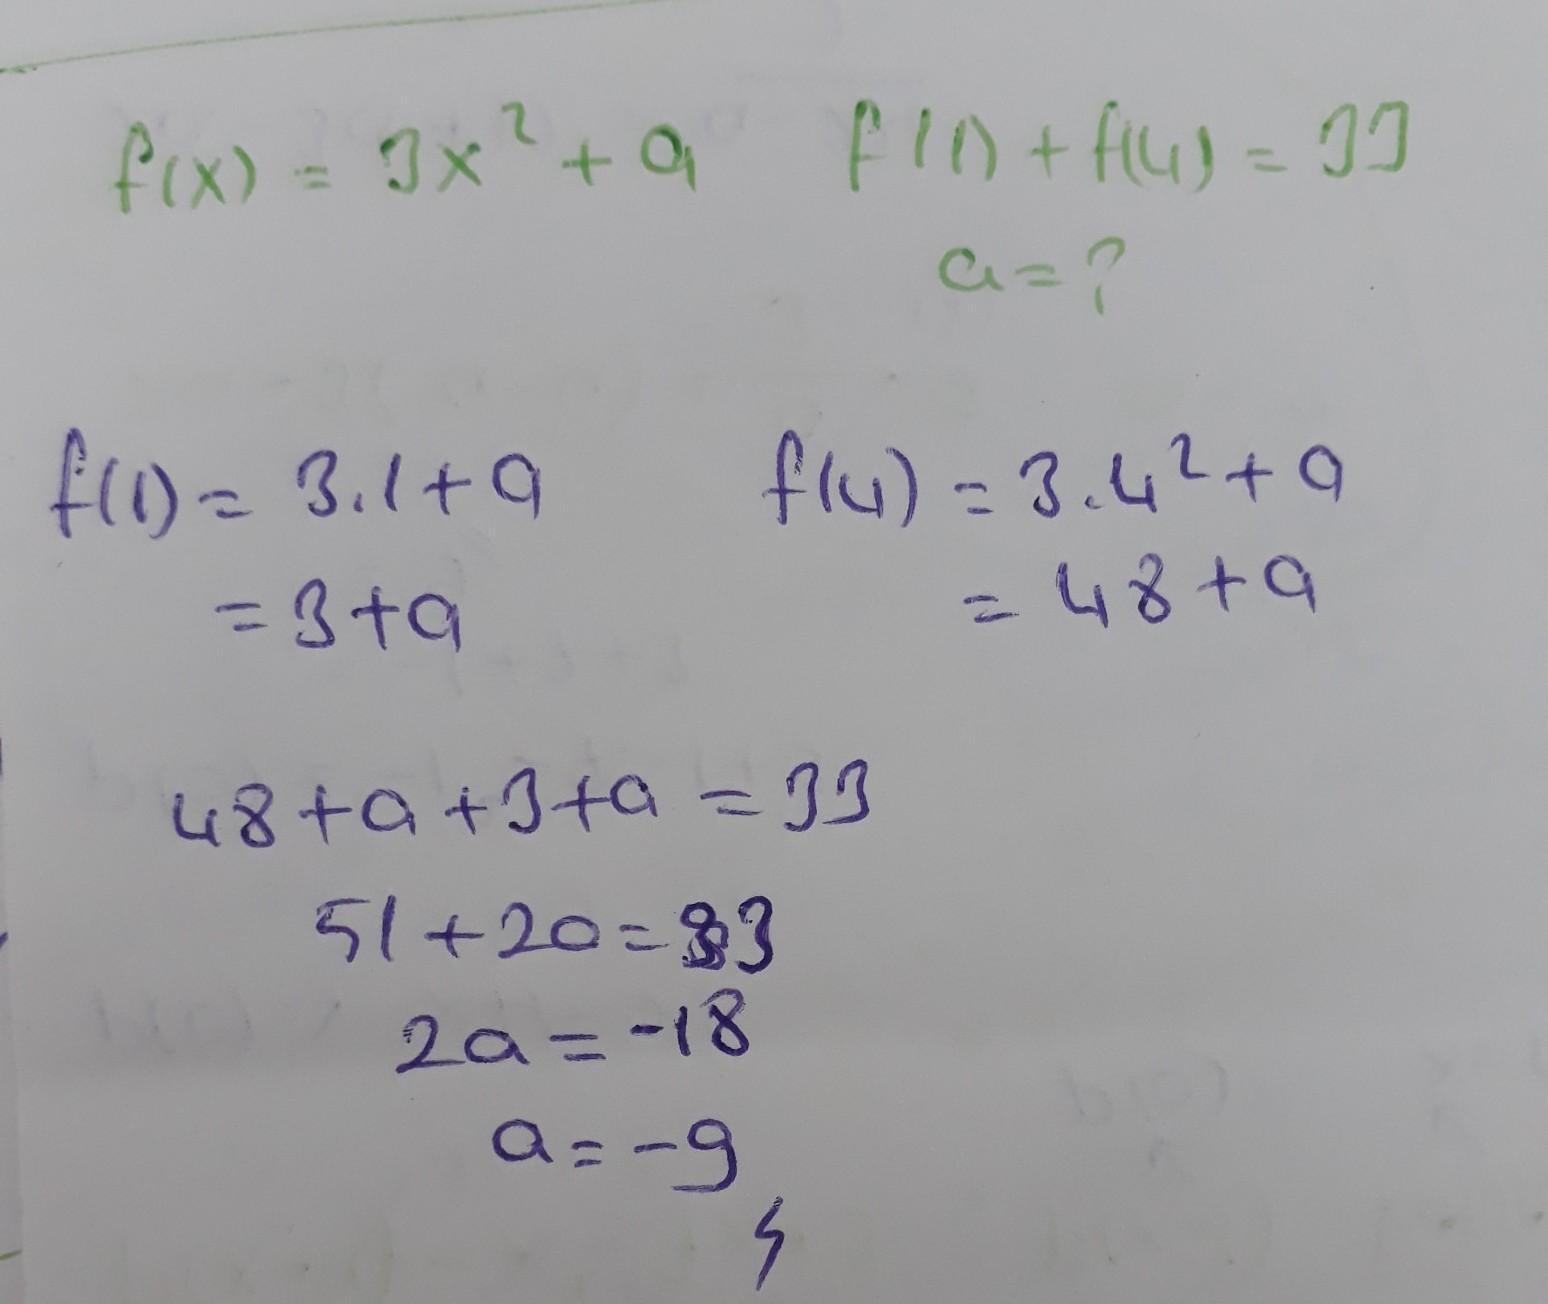 f(x) = 3x² + a f(1) + f(4) = 33
a = ?
f(1) = 3.1 + a f(4) = 3.4² + a
= 3 + a = 48 + a
48 + a + 3 + a = 33
51 + 2a = 33
2a = -18
a = -9